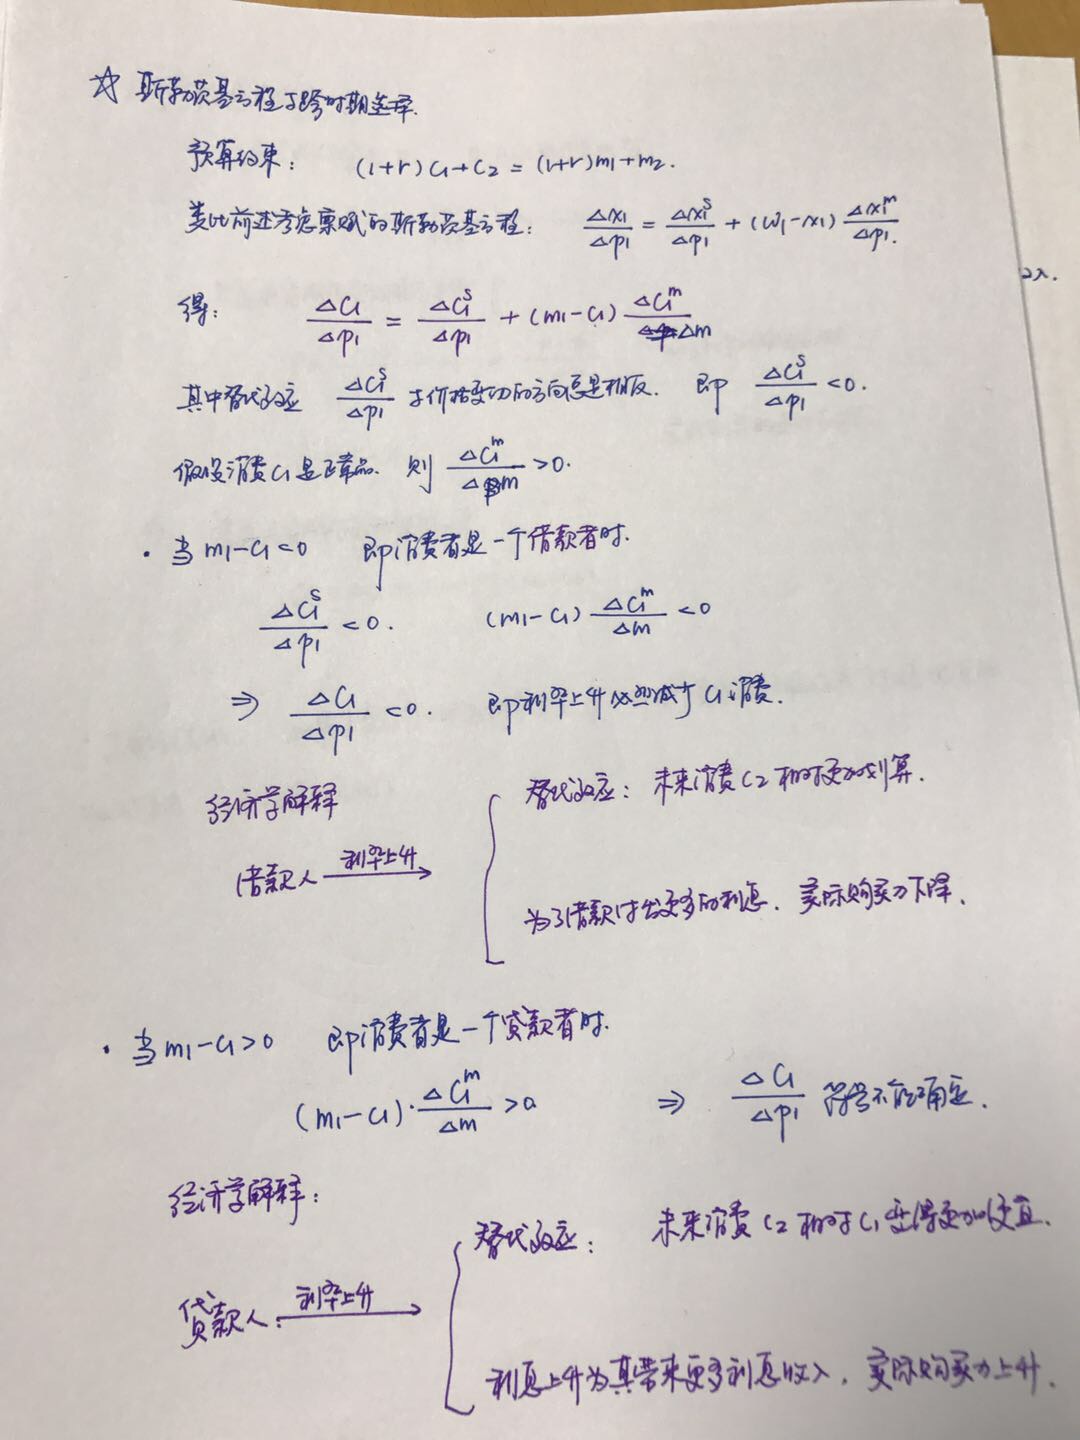 ☆ 斯勒茨基方程与跨时期选择.
预算约束: (1+r)C₁+C₂=(1+r)m₁+m₂.
类比前述考虑禀赋的斯勒茨基方程: Δx₁/Δp₁ = Δx₁ˢ/Δp₁ + (ω₁-x₁) Δx₁ᵐ/Δp₁.
2入.
得: ΔC₁/Δp₁ = ΔC₁ˢ/Δp₁ + (m₁-C₁) ΔC₁ᵐ/Δm
其中替代效应 ΔC₁ˢ/Δp₁ 与价格变动的方向总是相反. 即 ΔC₁ˢ/Δp₁ <0.
假设消费C₁是正常品. 则 ΔC₁ᵐ/Δm >0.
· 当 m₁-C₁<0 即消费者是一个借款者时.
ΔC₁ˢ/Δp₁ <0. (m₁-C₁) ΔC₁ᵐ/Δm <0
⇒ ΔC₁/Δp₁ <0. 即利率上升必然减少C₁消费.
经济学解释
替代效应: 未来消费C₂相对更加划算.
借款人 利率上升→
为了借款付出更多的利息, 实际购买力下降.
· 当m₁-C₁>0 即消费者是一个贷款者时.
(m₁-C₁)·ΔC₁ᵐ/Δm >0 ⇒ ΔC₁/Δp₁ 符号不能确定.
经济学解释:
替代效应: 未来消费C₂相对于C₁变得更加便宜.
贷款人: 利率上升→
利息上升为其带来更多利息收入, 实际购买力上升.